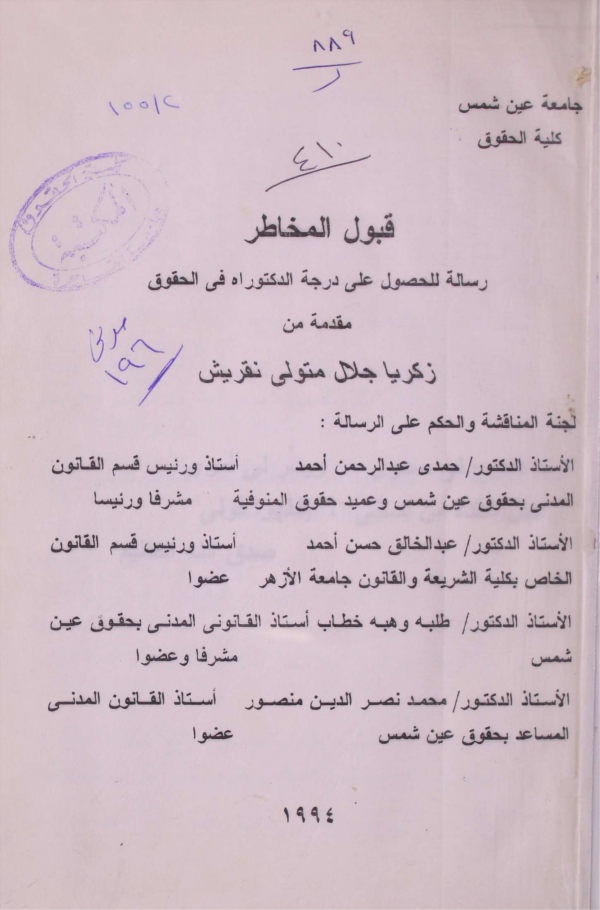 ٨٨٩
ر
جامعة عين شمس
١٠٠١/٢
كلية الحقوق
٤١٠
المكتبة
قبول المخاطر
رسالة للحصول على درجة الدكتوراه فى الحقوق
مقدمة من
مدنى
١٩٦
زكريا جلال متولى نقريش
لجنة المناقشة والحكم على الرسالة :
الأستاذ الدكتور/ حمدى عبدالرحمن أحمد أستاذ ورئيس قسم القانون
المدنى بحقوق عين شمس وعميد حقوق المنوفية مشرفا ورئيسا
الأستاذ الدكتور/ عبدالخالق حسن أحمد أستاذ ورئيس قسم القانون
الخاص بكلية الشريعة والقانون جامعة الأزهر عضوا
الأستاذ الدكتور/ طلبه وهبه خطاب أستاذ القانونى المدنى بحقوق عين
شمس مشرفا وعضوا
الأستاذ الدكتور/ محمد نصر الدين منصور أستاذ القانون المدنى
المساعد بحقوق عين شمس عضوا
١٩٩٤